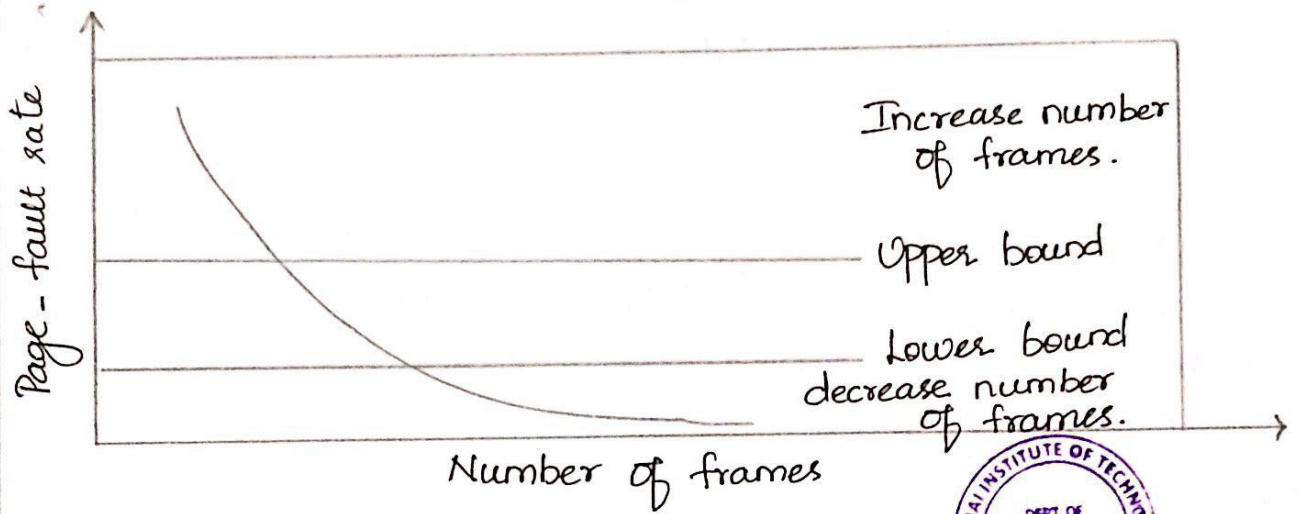 Page-fault rate
Increase number
of frames.
Upper bound
Lower bound
decrease number
of frames.
Number of frames
INSTITUTE OF
DEPT. OF